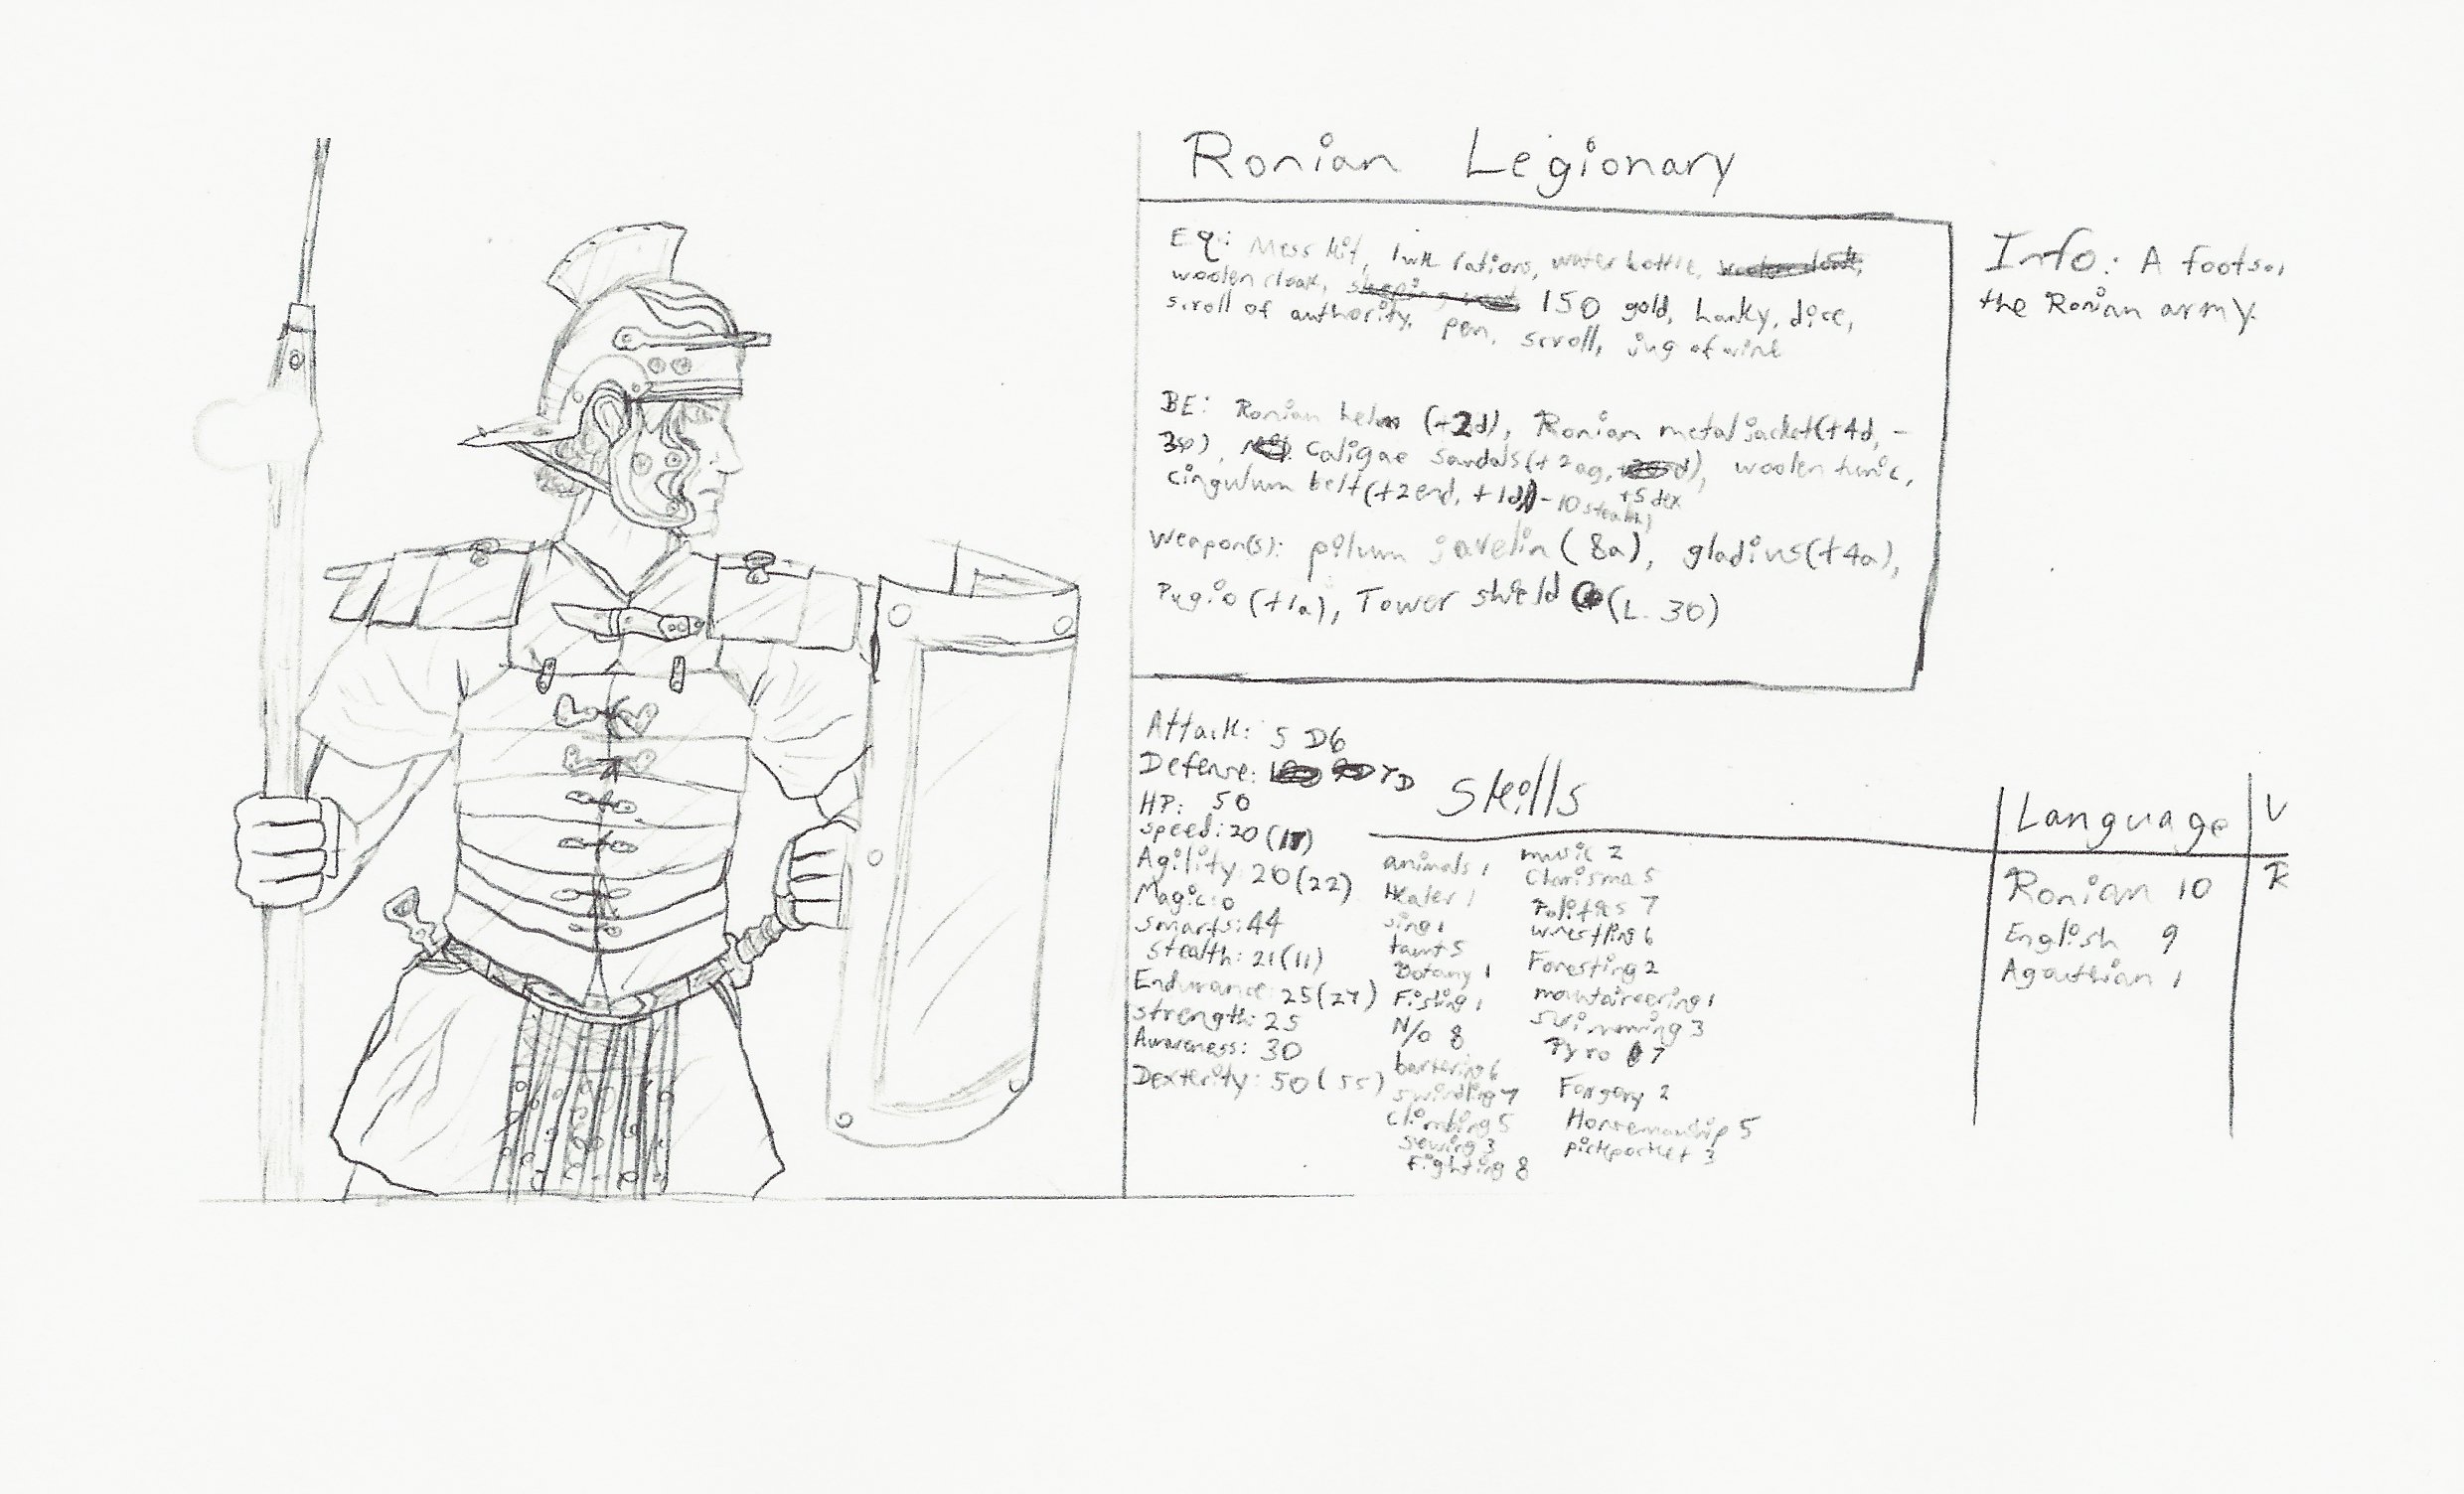 Ronian Legionary
Eq: Mess kit, 1wk rations, water bottle,
woolen cloak, 150 gold, hanky, dice,
scroll of authority, pen, scroll, jug of wine
BE: Ronian helm (+2d), Ronian metal jacket (+4d, -
3sp), Caligae sandals (+2ag, d), woolen tunic,
cingulum belt (+2end, +1d) -10 stealth, +5 dex
Weapon(s): pilum javelin (8a), gladius (+4a),
Pugio (+1a), Tower shield (L. 30)
Info: A footso
the Ronian army.
Attack: 5 D6
Defense: 7D
HP: 50
speed: 20 (17)
Agility 20 (22)
Magic: 0
smarts: 44
stealth: 21 (11)
Endurance 25 (27)
strength: 25
Awareness: 30
Dexterity: 50 (55)
Skills
animals 1
Healer 1
sing 1
taunt 5
Botany 1
Fishing 1
N/o 8
bartering 6
swindling 7
climbing 5
sewing 3
fighting 8
music 2
Charisma 5
Politics 7
wrestling 6
Foresting 2
mountaineering 1
swimming 3
Pyro 7
Forgery 2
Horsemanship 5
pickpocket 3
Language
Ronian 10
English 9
Agauthian 1